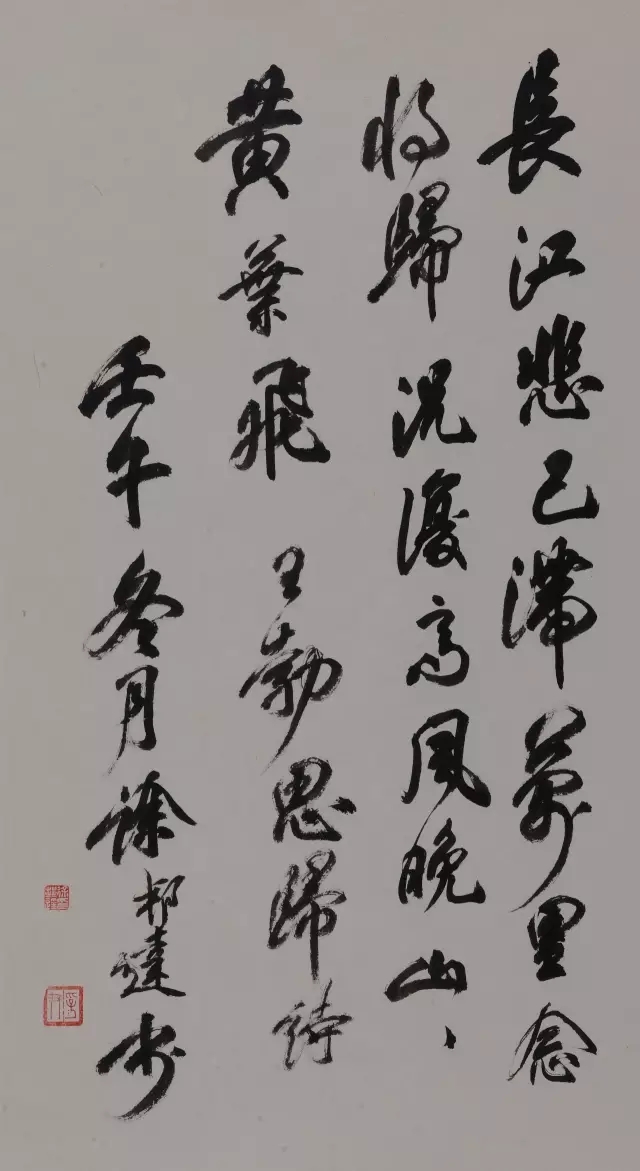 長江悲已滯萬里念
將歸況復高風晚山、
黃葉飛 王勃思歸詩
壬午冬月徐邦達書